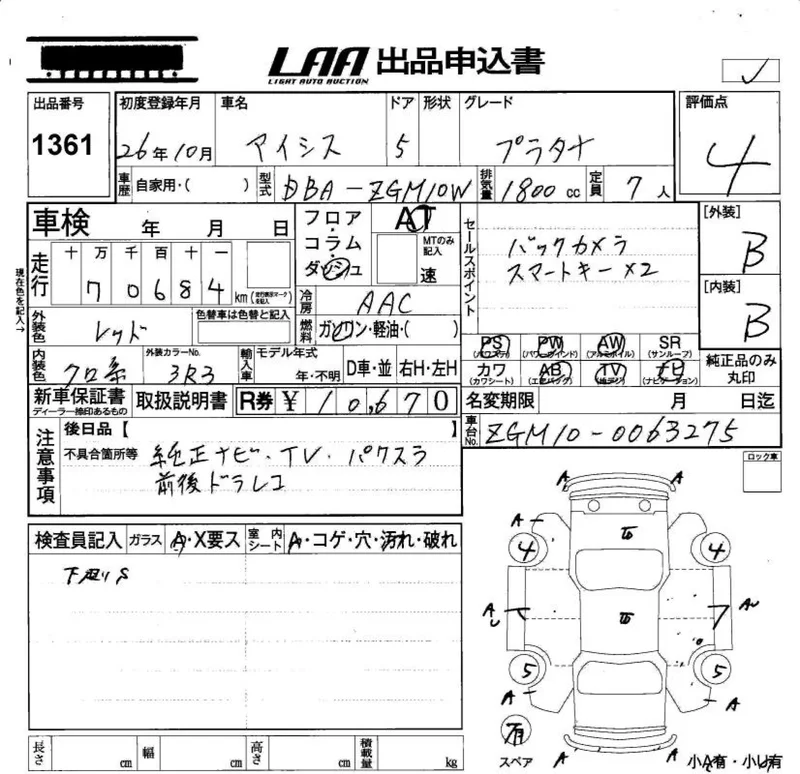 LAA 出品申込書
LIGHT AUTO AUCTION
出品番号 初度登録年月 車名 ドア 形状 グレード 評価点
1361 26年10月 アイシス 5 プラタナ 4
車歴 自家用・( ) 型式 DBA-ZGM10W 排気量 1800cc 定員 7人
車検 年 月 日 フロア・コラム・ダッシュ AT MTのみ記入 速
セールスポイント バックカメラ
スマートキー×2
[外装] B
[内装] B
現在色を記入→
走行 十 万 千 百 十 一
7 0 6 8 4 km (走行表示マーク 未記入)
冷房 AAC
外装色 レッド 色替車は色替と記入 燃料 ガソリン・軽油・( )
内装色 クロ系 外装カラーNo. 3R3 輸入車 モデル年式 年・不明 D車・並 右H・左H
PS (パワステ) PW (パワーウインド) AW (アルミホイル) SR (サンルーフ)
カワ (カワシート) AB (エアバック) TV (地デジ) ナビ (ナビゲーション)
純正品のみ丸印
新車保証書 ディーラー捺印あるもの 取扱説明書 R券 ¥ 10,670
名変期限 月 日迄
車台No. ZGM10-0063275
注意事項 後日品【 】
不具合箇所等 純正ナビ・TV・パワスラ
前後ドラレコ
ロック車
検査員記入 ガラス A・X要ス 室内シート A・コゲ・穴・汚れ・破れ
下廻りS
A A
A A
4 4
A A
5 5
A A
有
スペア
A A
小A有・小U有
長さ cm 幅 cm 高さ cm 積載量 kg